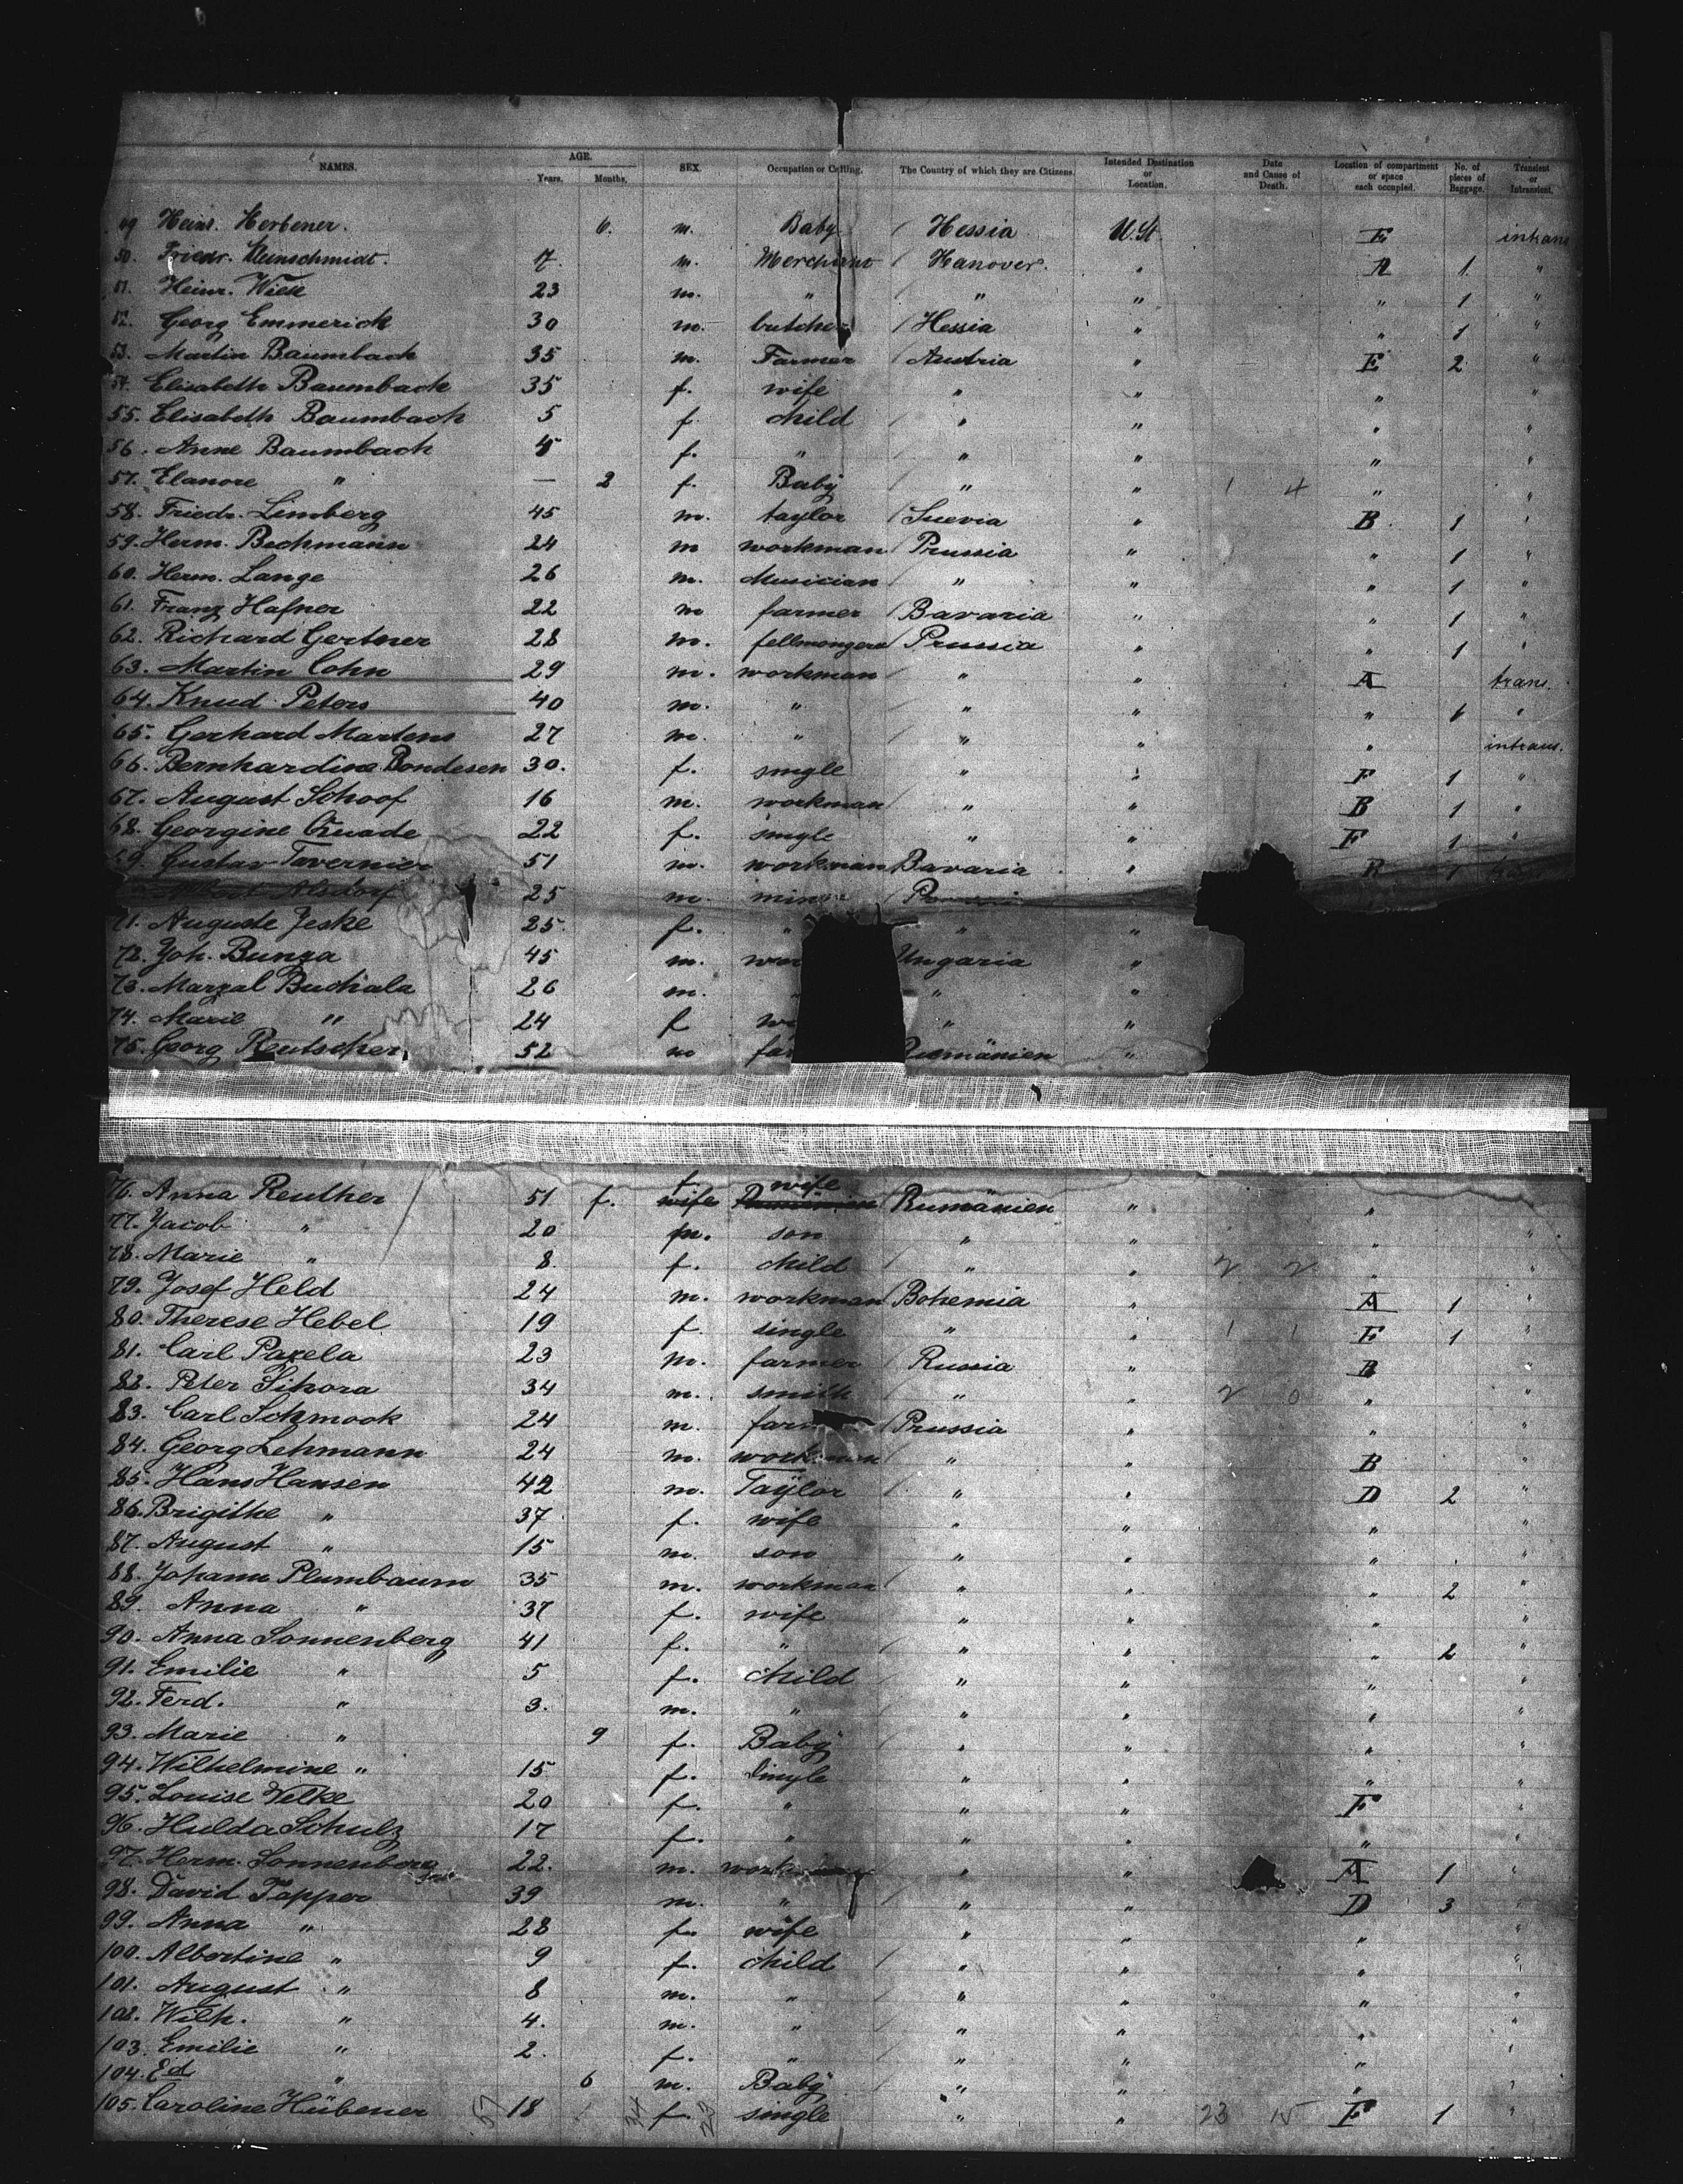 NAMES. AGE. Years. Months. SEX. Occupation or Calling. The Country of which they are Citizens. Intended Destination or Location. Date and Cause of Death. Location of compartment or space each occupied. No. of pieces of Baggage. Transient or Intransient.
49 Heinr. Herbener. 6. m. Baby Hessia U.St. E intrans
50. Friedr. Kleinschmidt. 17. m. Merchant Hanover. " A 1. "
51. Heinr. Wiese 23 m. " " " " 1 "
52. Georg Emmerich 30 m. butcher Hessia " " 1 "
53. Martin Baumbach 35 m. Farmer Austria " E 2 "
54. Elisabeth Baumbach 35 f. wife " " " "
55. Elisabeth Baumbach 5 f. child " " " "
56. Anne Baumbach 4 f. " " " " "
57. Elanore " — 2 f. Baby " " 1 4 " "
58. Friedr. Limberg 45 m. taylor Suevia " B 1 "
59. Herm. Bechmann 24 m workman Prussia " " 1 "
60. Herm. Lange 26 m. Musician " " " 1 "
61. Franz Hafner 22 m farmer Bavaria " " 1 "
62. Richard Gertner 28 m. fellmongers Prussia " " 1 "
63. Martin Cohn 29 m. workman " " A trans.
64. Knud Peters 40 m. " " " " 6 "
65. Gerhard Martens 27 m. " " " " intrans.
66. Bernhardine Bondesen 30. f. single " " F 1 "
67. August Schoof 16 m. workman " " B 1 "
68. Georgine Quade 22 f. single " " F 1 "
69. Gustav Tavernier 51 m. workman Bavaria " B 1
Albert Alsdorf 25 m. mine
71. Auguste Jeske 25 f. " " "
72. Joh. Bunza 45 m. wor Ungaria "
73. Marzal Buchala 26 m. " " "
74. Marie " 24 f " "
75. Georg Reutscher 52 m far Rumänien "
76. Anna Reuther 51 f. f wife wife Rumänien " "
77. Jacob " 20 m. son " " " "
78. Marie " 8. f. child " " 2 2 " "
79. Josef Held 24 m. workman Bohemia " A 1 "
80. Therese Hebel 19 f. single " " 1 1 E 1 "
81. Carl Paxela 23 m. farmer Russia " B
82. Peter Sikora 34 m. smith " " 2 0 " "
83. Carl Schmook 24 m. farm Prussia " " "
84. Georg Lehmann 24 m. workman " " B "
85. Hans Hansen 42 m. Taylor " " D 2 "
86. Brigithe " 37 f. wife " " " "
87. August " 15 m. son " " " "
88. Johann Plumbaum 35 m. workman " " " 2 "
89. Anna " 37 f. wife " " " "
90. Anna Sonnenberg 41 f. " " " " 2 "
91. Emilie " 5 f. child " " " "
92. Ferd. " 3. m. " " " " "
93. Marie " 9 f. Baby " " " "
94. Wilhelmine " 15 f. single " " " "
95. Louise Velke 20 f. " " " F "
96. Hulda Schulz 17 f. " " " " "
97. Herm. Sonnenberg 22. m. workman " " A 1 "
98. David Tapper 39 m. " " " D 3 "
99. Anna " 28 f. wife " " " "
100. Albertine " 9 f. child " " " "
101. August " 8 m. " " " " "
102. Wilh. " 4. m. " " " " "
103. Emilie " 2. f. " " " " "
104. Ed " 6 m. Baby " " " "
105. Caroline Hübener 57 18 34 f. 23 single " " 23 15 F 1 "